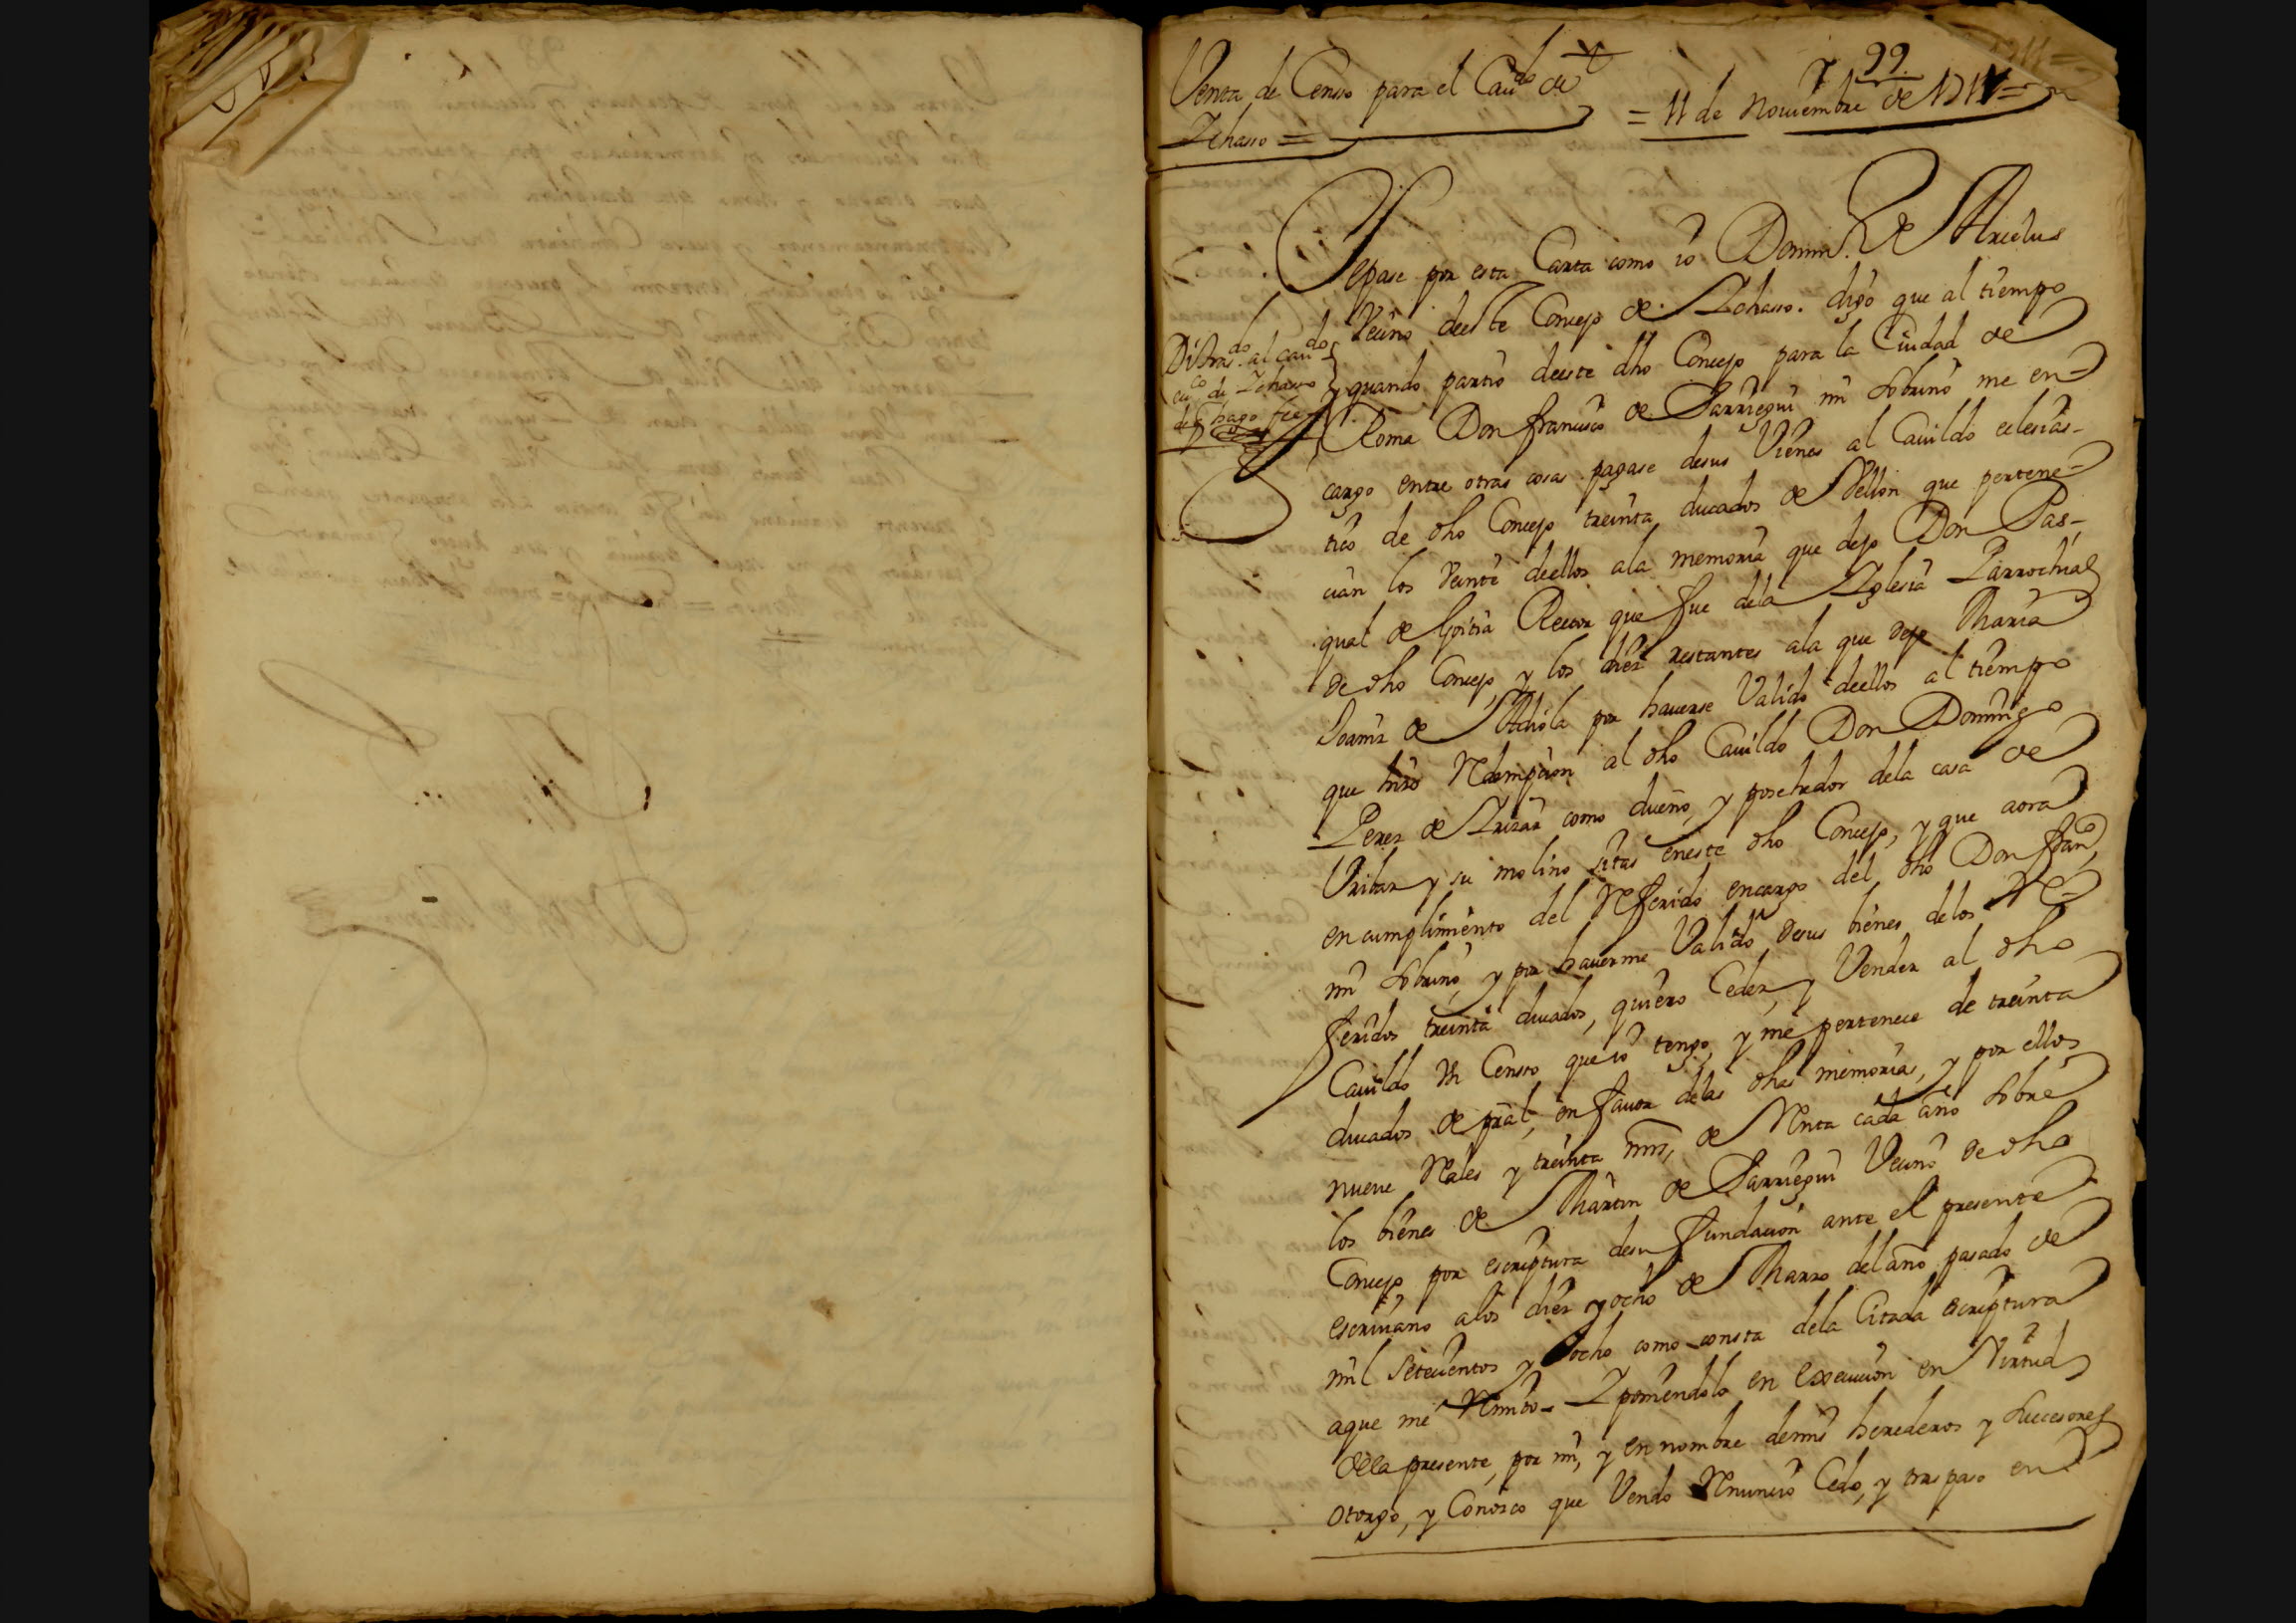 99
Venta de Censso para el Cauᵈᵒ de
Ichasso =
= 11 de Nouiembre de 171
Sepase por esta Carta como io Domin.ᵒ de Arietu
Vecino deeste Concejo de Ichasso. digo que al tiempo
y quando partio deeste dho Concejo para la Ciudad de
Roma Don franᶜisco de Sarriegui mi sobrino me en=
cargo entre otras cosas pagase desus Vienes al Cauildo eclesias-
tico de dho Concejo treinta ducados de Vellon que pertene=
cian los Veinte deellos ala memoria que dejo Don Pas-
qual de Goitia Rector que fue dela Iglesia Parrochial
de dho Concejo, y los diez restantes ala que dejo Maria
Joaniz de por hauerse Valido deellos al tiempo
que hizo Redempcion al dho Cauildo Don Domingo
Perez de Irizar como dueño, y posehedor dela casa de
Vribar y su molino sitas eneste dho Concejo, y que aora
en cumplimiento del Referido encargo del dho Don franᶜᵒ,
mi sobrino, y por hauerme Valido desus bienes delos Re=
feridos treinta ducados, quiero Ceder, y Vender al dho
Cauildo Vn Censso que io tengo, y me pertenece de treinta
ducados de pral, en fauor delas dhas memorias, y por ellos
nueve Reales y treinta mrs, de Renta cada año sobre
los bienes de Martin de Sarriegui Vecino de dho
Concejo, por escriptura desu fundacion ante el presente
escriuano alos diez y ocho de Marzo del año pasado de
mil setecientos y ocho como consta dela Citada escriptura
aque me Remito- I poniendolo en execucion en Virtud
dela presente, por mi, y en nombre demis herederos y successores
otorgo, y Conozco que Vendo Renuncio Cedo, y traspaso en
Di tras.ᵈᵒ al cauᵈᵒ
ecᶜᵒ de Ichasso
de hago fee